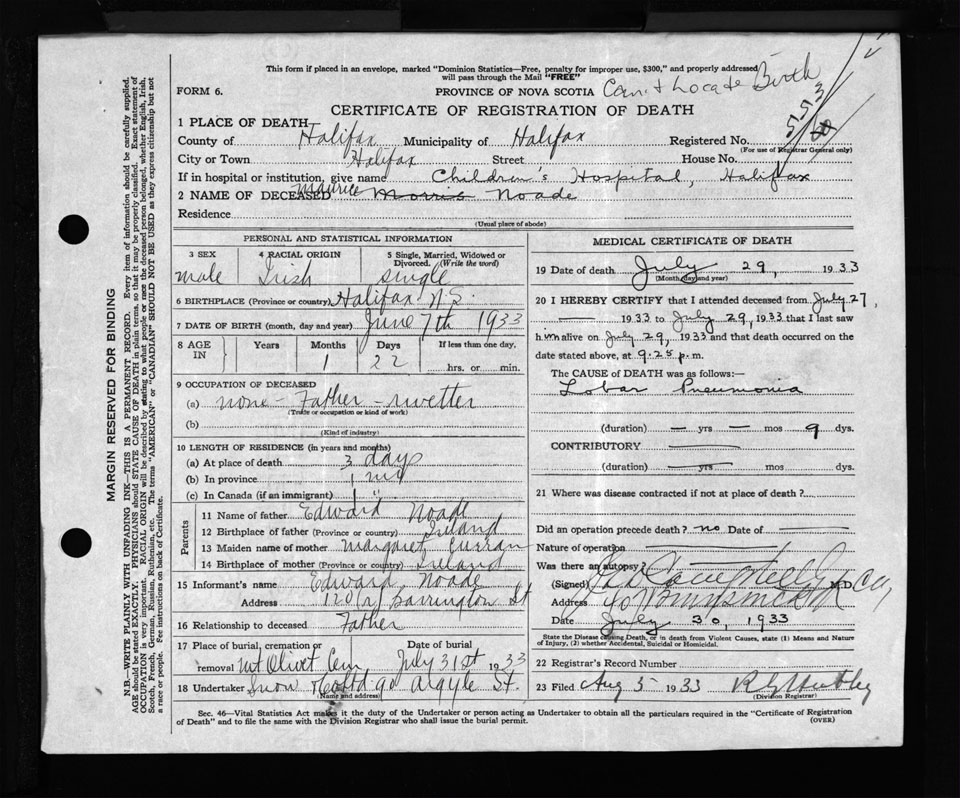 This form if placed in an envelope, marked "Dominion Statistics—Free, penalty for improper use, $300," and properly addressed
will pass through the Mail "FREE"
FORM 6. PROVINCE OF NOVA SCOTIA Can't Locate Birth
CERTIFICATE OF REGISTRATION OF DEATH
553
1 PLACE OF DEATH
County of Halifax Municipality of Halifax Registered No.
(For use of Registrar General only)
City or Town Halifax Street House No.
If in hospital or institution, give name Children's Hospital, Halifax
2 NAME OF DECEASED Maurice Morris Noade
Residence
(Usual place of abode)
PERSONAL AND STATISTICAL INFORMATION
3 SEX 4 RACIAL ORIGIN 5 Single, Married, Widowed or Divorced. (Write the word)
male Irish single
6 BIRTHPLACE (Province or country) Halifax N.S.
7 DATE OF BIRTH (month, day and year) June 7th 1933
8 AGE IN Years Months Days If less than one day,
1 22 hrs. or min.
9 OCCUPATION OF DECEASED
(a) none - Father -
(Trade or occupation or kind of work)
(b)
(Kind of industry)
10 LENGTH OF RESIDENCE (in years and months)
(a) At place of death 3 days
(b) In province 1 mo
(c) In Canada (if an immigrant) 1 "
Parents
11 Name of father Edward Noade
12 Birthplace of father (Province or country) Ireland
13 Maiden name of mother Margaret Curran
14 Birthplace of mother (Province or country) Ireland
15 Informant's name Edward Noade
Address Barrington St
16 Relationship to deceased Father
17 Place of burial, cremation or Date of burial
removal Mt Olivet Cem July 31st 1933
18 Undertaker Snow Argyle St.
(Name and address)
MEDICAL CERTIFICATE OF DEATH
19 Date of death July 29, 1933
(Month, day and year)
20 I HEREBY CERTIFY that I attended deceased from July 27,
1933 to July 29, 1933 that I last saw
him alive on July 29, 1933 and that death occurred on the
date stated above, at 9.25 p.m.
The CAUSE OF DEATH was as follows:—
Lobar Pneumonia
(duration) — yrs — mos 9 dys.
CONTRIBUTORY
(duration) yrs mos dys.
21 Where was disease contracted if not at place of death?
Did an operation precede death? no Date of
Nature of operation
Was there an autopsy?
(Signed) M.D.
Address
Date July 30, 1933
State the Disease causing Death, or in death from Violent Causes, state (1) Means and Nature
of Injury, (2) whether Accidental, Suicidal or Homicidal.
22 Registrar's Record Number
23 Filed Aug 5 1933
(Division Registrar)
Sec. 46—Vital Statistics Act makes it the duty of the Undertaker or person acting as Undertaker to obtain all the particulars required in the "Certificate of Registration
of Death" and to file the same with the Division Registrar who shall issue the burial permit. (OVER)
MARGIN RESERVED FOR BINDING
N.B.—WRITE PLAINLY WITH UNFADING INK—THIS IS A PERMANENT RECORD. Every item of information should be carefully supplied.
AGE should be stated EXACTLY. PHYSICIANS should STATE CAUSE OF DEATH in plain terms, so that it may be properly classified. Exact statement of
OCCUPATION is very important. RACIAL ORIGIN will be described by stating to what people or race the deceased person belonged, whether English, Irish,
Scotch, French, German, Russian, Ruthenian, etc. The terms "AMERICAN" or "CANADIAN" SHOULD NOT BE USED as they express citizenship but not
a race or people. See instructions on back of Certificate.